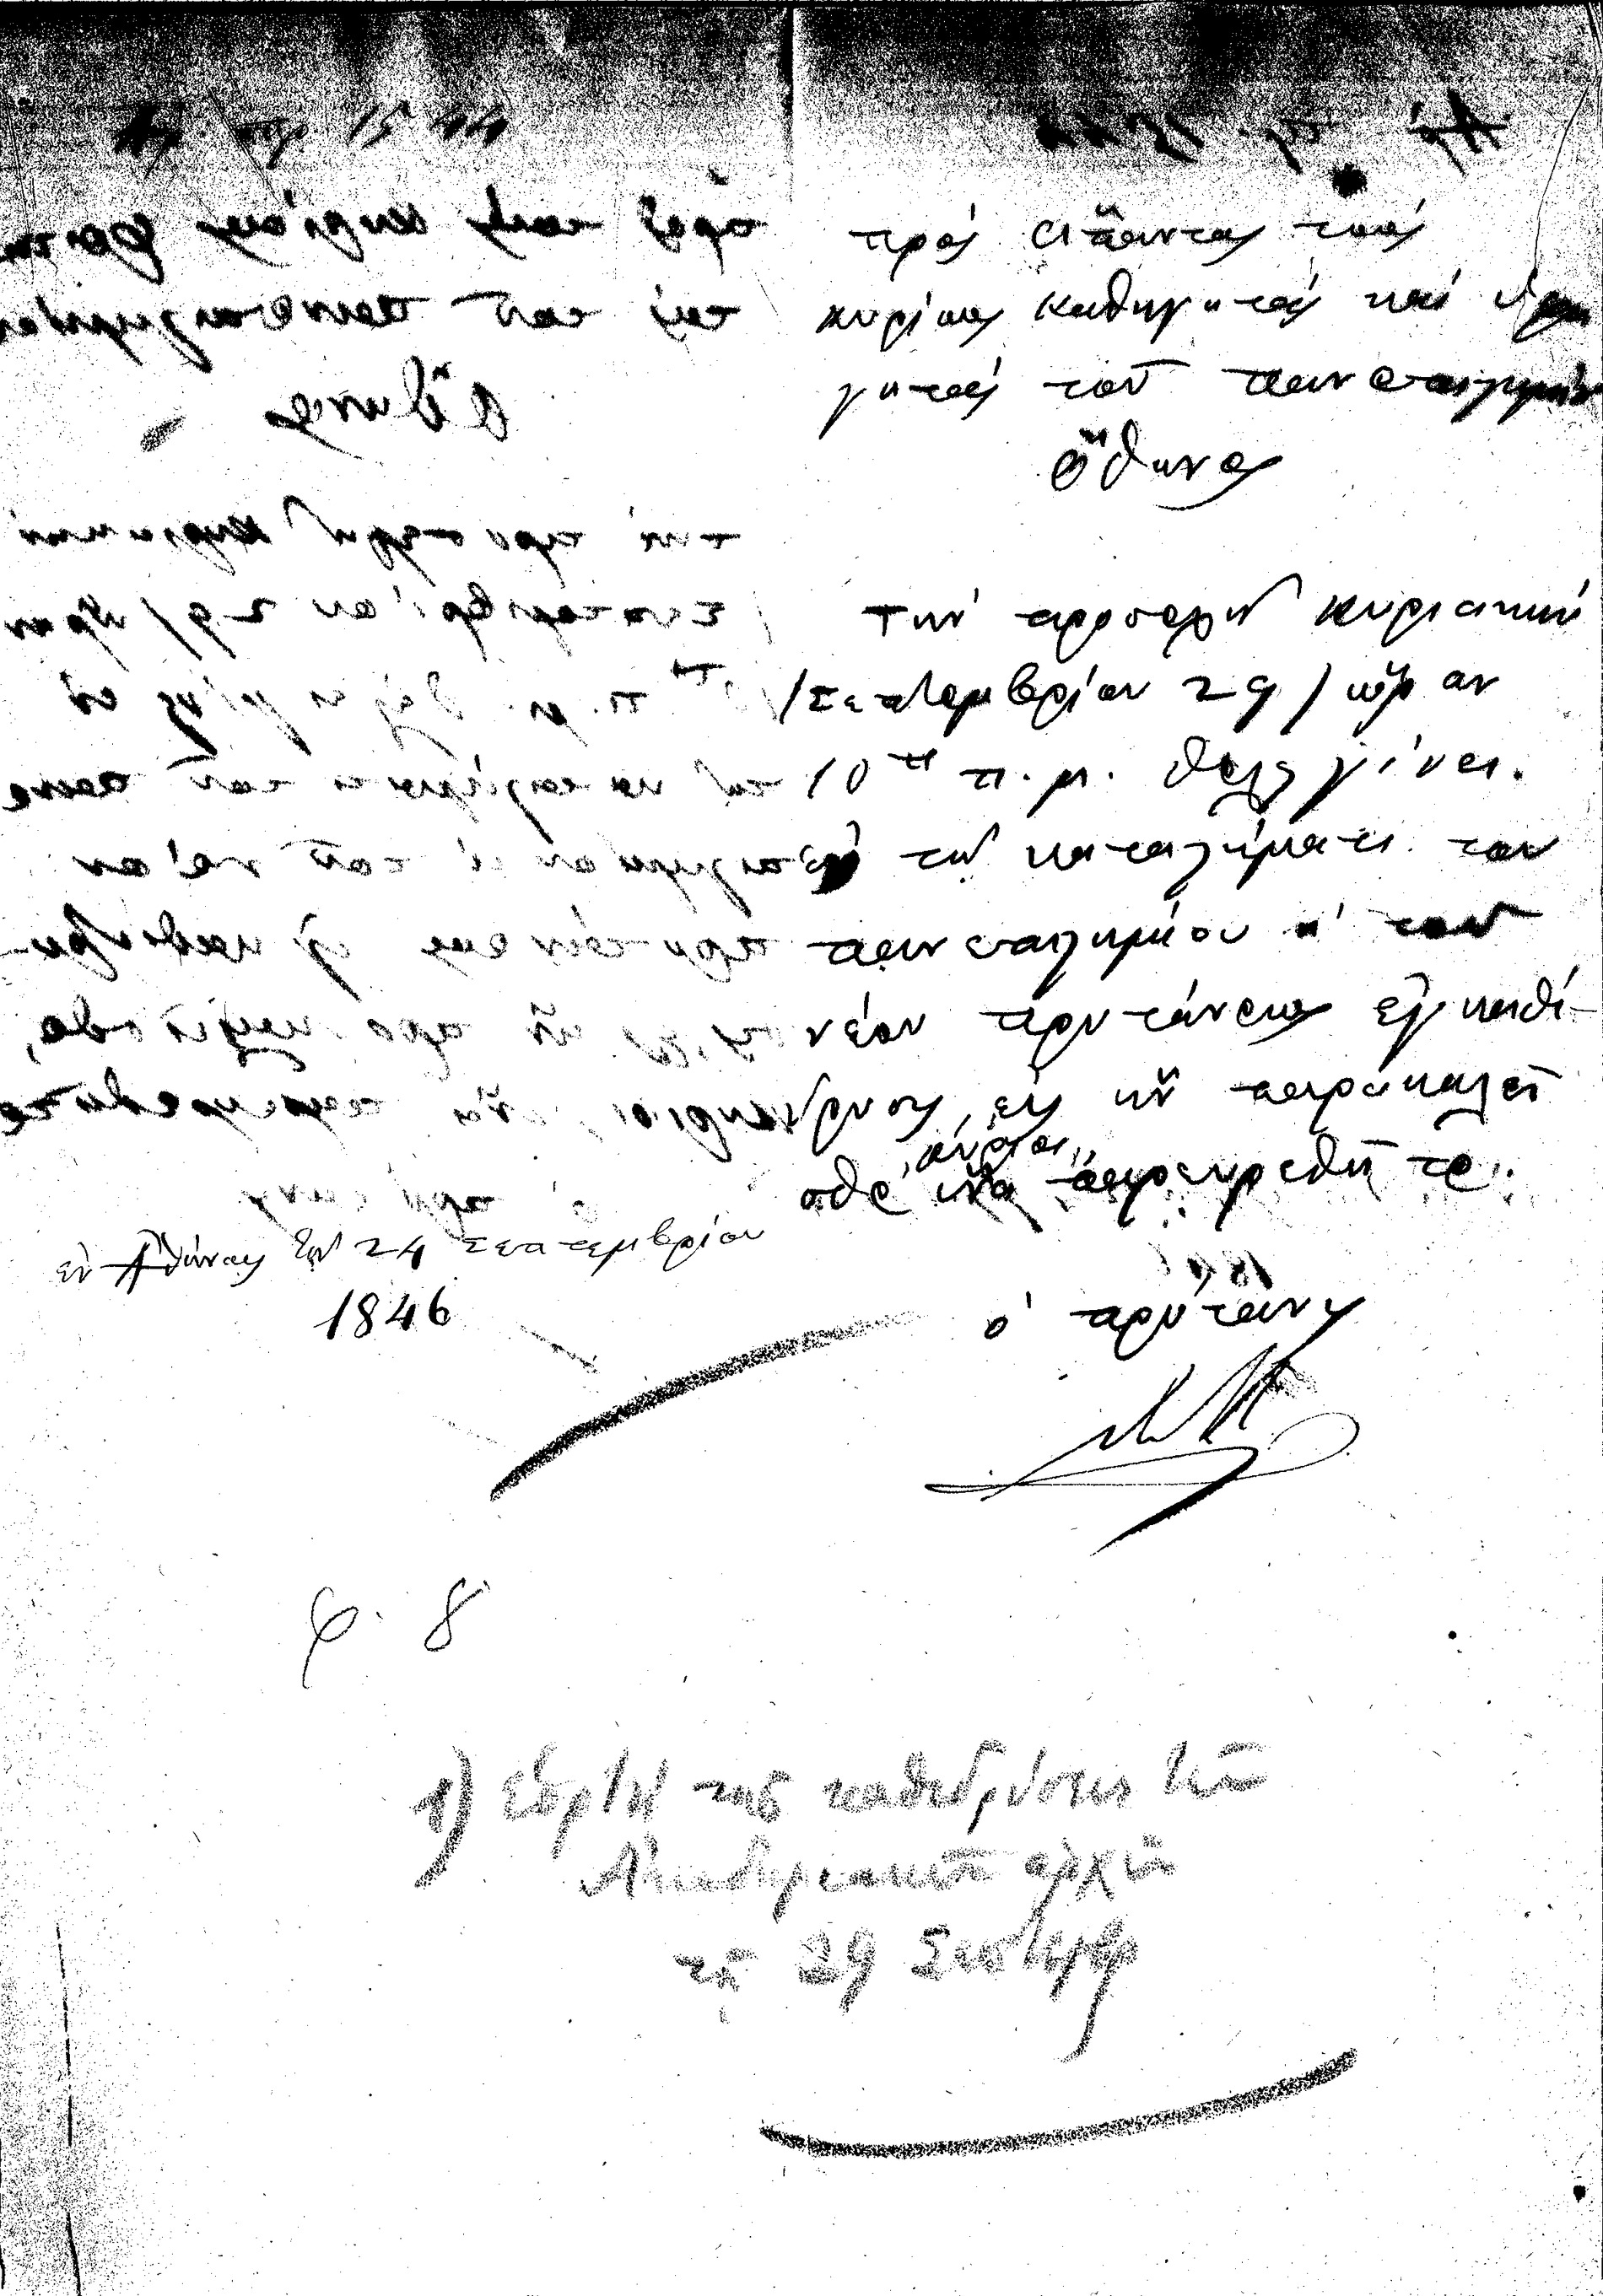 Ἀρ. πρ. 1544
πρός ἅπαντας τούς
κυρίους καθηγητάς καί ὑφη
γητάς τοῦ πανεπιστημίου
Ὄθωνος
Τήν προσεχῆ κυριακήν
/Σεπτεμβρίου 29/ ὥραν
10 π.μ. θέλει γίνει.
ἐν τῷ καταστήματι τοῦ
πανεπιστημίου ἡ τοῦ
νέου πρυτάνεως ἐγκαθί-
δρυσις, εἰς ἥν παρακαλεῖ
σθε, κύριοι, ἵνα παρευρεθῆτε.
ἐν Ἀθήναις τήν 24 Σεπτεμβρίου
1846
ὁ πρύτανις
φ. 8
1) Ἑορτή τῆς καθιδρύσεως τῶν
Ἀκαδημαϊκῶν ἀρχῶν
τῇ 29 Σεπτεμβρ